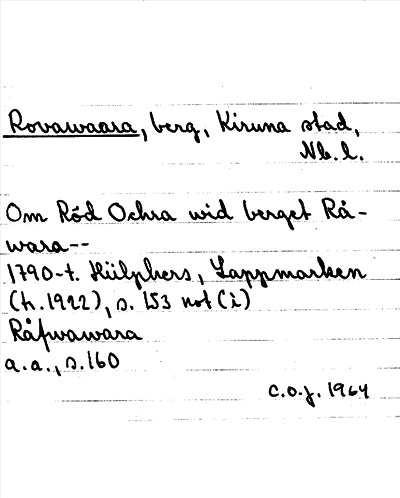 Rovawaara, berg, Kiruna stad,
Nb. l.
Om Röd Ochra wid berget Rå-
wara--
1790-t. Hülphers, Lappmarken
(h. 1922), s. 153 not (i)
Råfwawara
a.a., s. 160
C.O.J. 1964